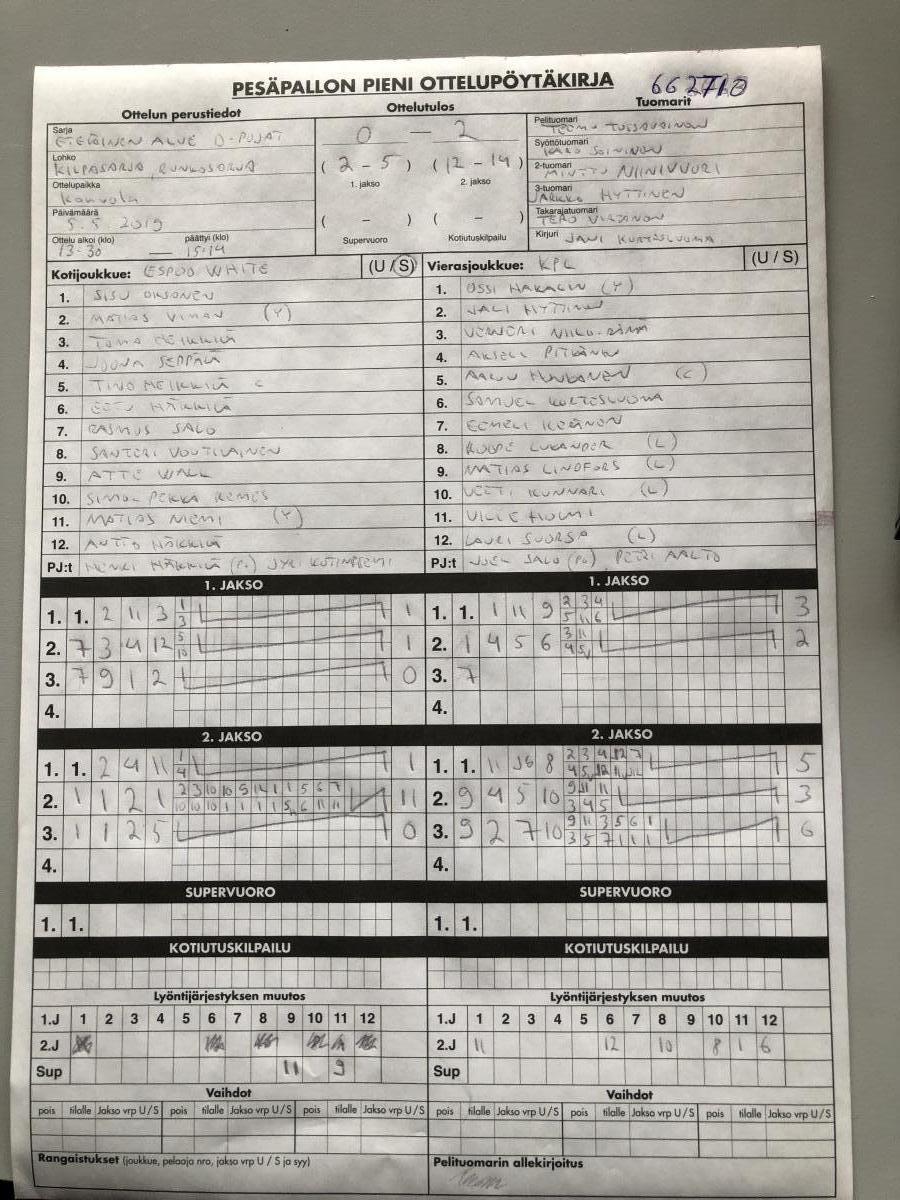 PESÄPALLON PIENI OTTELUPÖYTÄKIRJA
Ottelun perustiedot
Ottelutulos
Tuomarit
Sarja
ETELÄINEN ALUE D-POJAT
0 — 2
Pelituomari
TEEMU
Syöttötuomari
SOININEN
Lohko
KILPASARJA, RUNKOSARJA
(2 - 5) (12 - 14)
1. jakso
2. jakso
2-tuomari
MINTTU NIINIVUORI
Ottelupaikka
Kouvola
3-tuomari
JARKKO HYTTINEN
Päivämäärä
5.5 2019
( - ) ( - )
Takarajatuomari
TERO
Ottelu alkoi (klo)
päättyi (klo)
13-30 — 15-14
Supervuoro
Kotiutuskilpailu
Kirjuri
JANI KORTESLUOMA
Kotijoukkue: ESPOO WHITE (U / S)
Vierasjoukkue: KPL (U / S)
1. SISU OKSANEN
2. MATIAS VIMAN (Y)
3. TOMA MEIKKILÄ
4. JOONA SEPPÄLÄ
5. TINO MEIKKILÄ C
6. EETU HÄKKILÄ
7. RASMUS SALO
8. SANTERI VOUTILAINEN
9. ATTE WALL
10. SIMO PEKKA REMES
11. MATIAS NIEMI (Y)
12. ANTTO HÄKKILÄ
PJ:t HENRI HÄKKILÄ (PJ) JYRI
1. OSSI HAKALIN (Y)
2. JALI HYTTINEN
3. VERNERI NIKO-RÄMÄ
4. AKSELI PITKÄNEN
5. AARU HUUKONEN (C)
6. SAMUEL KORTESLUOMA
7. EEMELI KERÄNEN
8. ROOPE LUKANDER (L)
9. MATIAS LINDFORS (L)
10. VEETI KUNNARI (L)
11. VILLE HOLMI
12. LAURI SUORSA (L)
PJ:t JOEL SALO (PJ) PETRI AALTO
1. JAKSO
1. 1. 2 11 3 1 3 1
2. 7 3 4 12 5 10 1
3. 7 9 1 2 0
4.
1. JAKSO
1. 1. 1 11 9 2 3 4 5 11 6 3
2. 1 4 5 6 3 11 4 5 2
3. 7
4.
2. JAKSO
1. 1. 2 4 11 1 4 1
2. 1 1 2 1 11
3. 1 1 2 5 0
4.
2. JAKSO
1. 1. 11 8 5
2. 9 4 5 10 9 11 11 3 4 5 3
3. 9 2 7 10 9 11 3 5 6 1 3 5 7 1 1 1 6
4.
SUPERVUORO
1. 1.
SUPERVUORO
1. 1.
KOTIUTUSKILPAILU
KOTIUTUSKILPAILU
Lyöntijärjestyksen muutos
1.J 1 2 3 4 5 6 7 8 9 10 11 12
2.J
Sup 11 9
Lyöntijärjestyksen muutos
1.J 1 2 3 4 5 6 7 8 9 10 11 12
2.J 11 12 10 8 1 6
Sup
Vaihdot
pois tilalle Jakso vrp U / S pois tilalle Jakso vrp U / S pois tilalle Jakso vrp U / S
Vaihdot
pois tilalle Jakso vrp U / S pois tilalle Jakso vrp U / S pois tilalle Jakso vrp U / S
Rangaistukset (joukkue, pelaaja nro, jakso vrp U / S ja syy)
Pelituomarin allekirjoitus